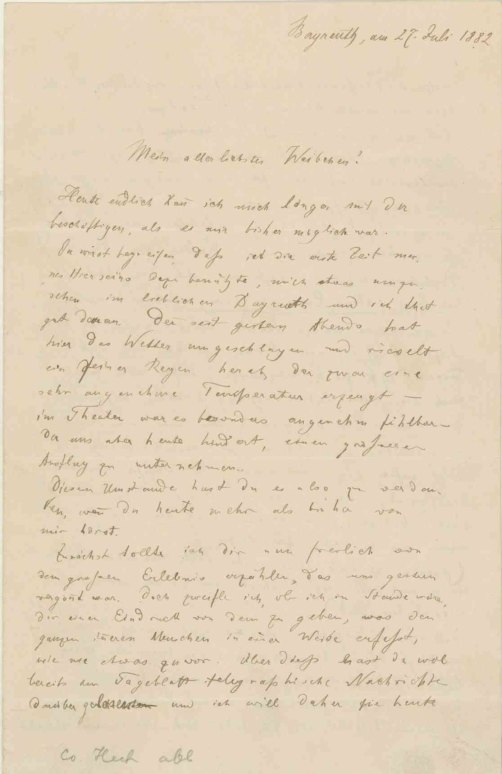 Bayreuth, am 27. Juli 1882
Mein allerliebstes Weibchen!
Heute endlich kann ich mich länger mit Dir
beschäftigen, als es mir bisher möglich war.
Du wirst begreifen, daß ich die erste Zeit mei-
nes Hierseins dazu benützte, mich etwas umzu-
sehen im lieblichen Bayreuth und ich that
gut daran. Denn seit gestern Abends hat
hier das Wetter umgeschlagen und rieselt
ein feiner Regen herab, der zwar eine
sehr angenehme Temperatur erzeugt –
im Theater war es besonders angenehm fühlbar –
der uns aber heute hindert, einen größeren
Ausflug zu unternehmen.
Diesem Umstande hast Du es also zu verdan-
ken, wenn Du heute mehr als bisher von
mir hörst.
Zunächst sollte ich Dir nun freilich von
dem großen Erlebnis erzählen, das uns gestern
vergönnt war. Doch zweifle ich, ob ich im Stande wäre,
Dir einen Eindruck von dem zu geben, was den
ganzen inneren Menschen in einer Weise erfaßt,
wie nie etwas zuvor. Überdieß hast Du wol
bereits im Tageblatt telegraphische Nachrichten
darüber gelesen und ich will daher für heute
Co Heck abl